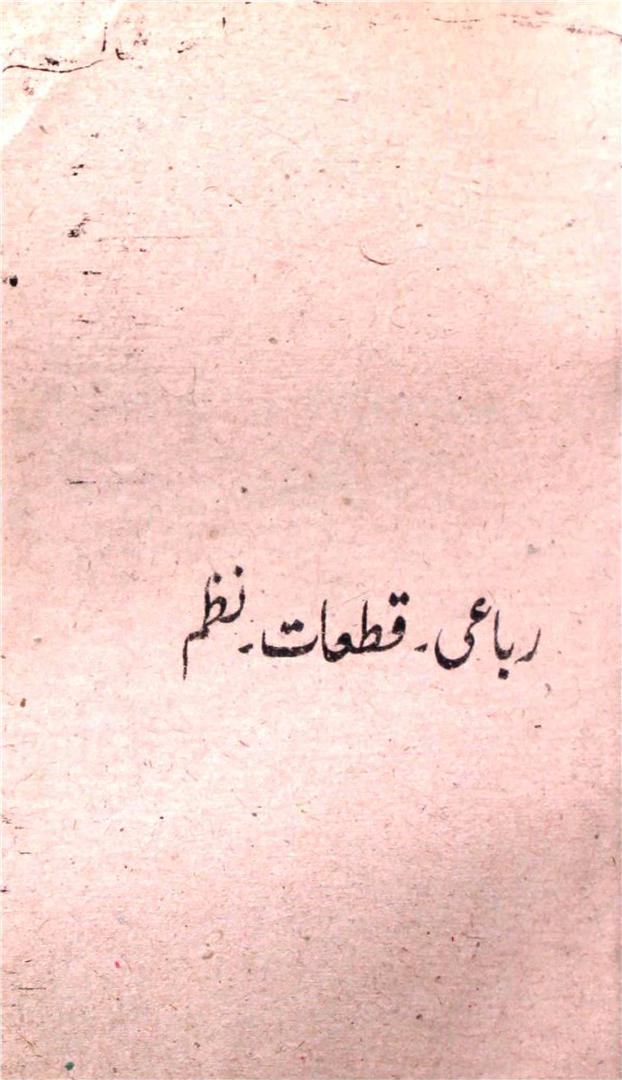 رباعی۔ قطعات۔ نظم